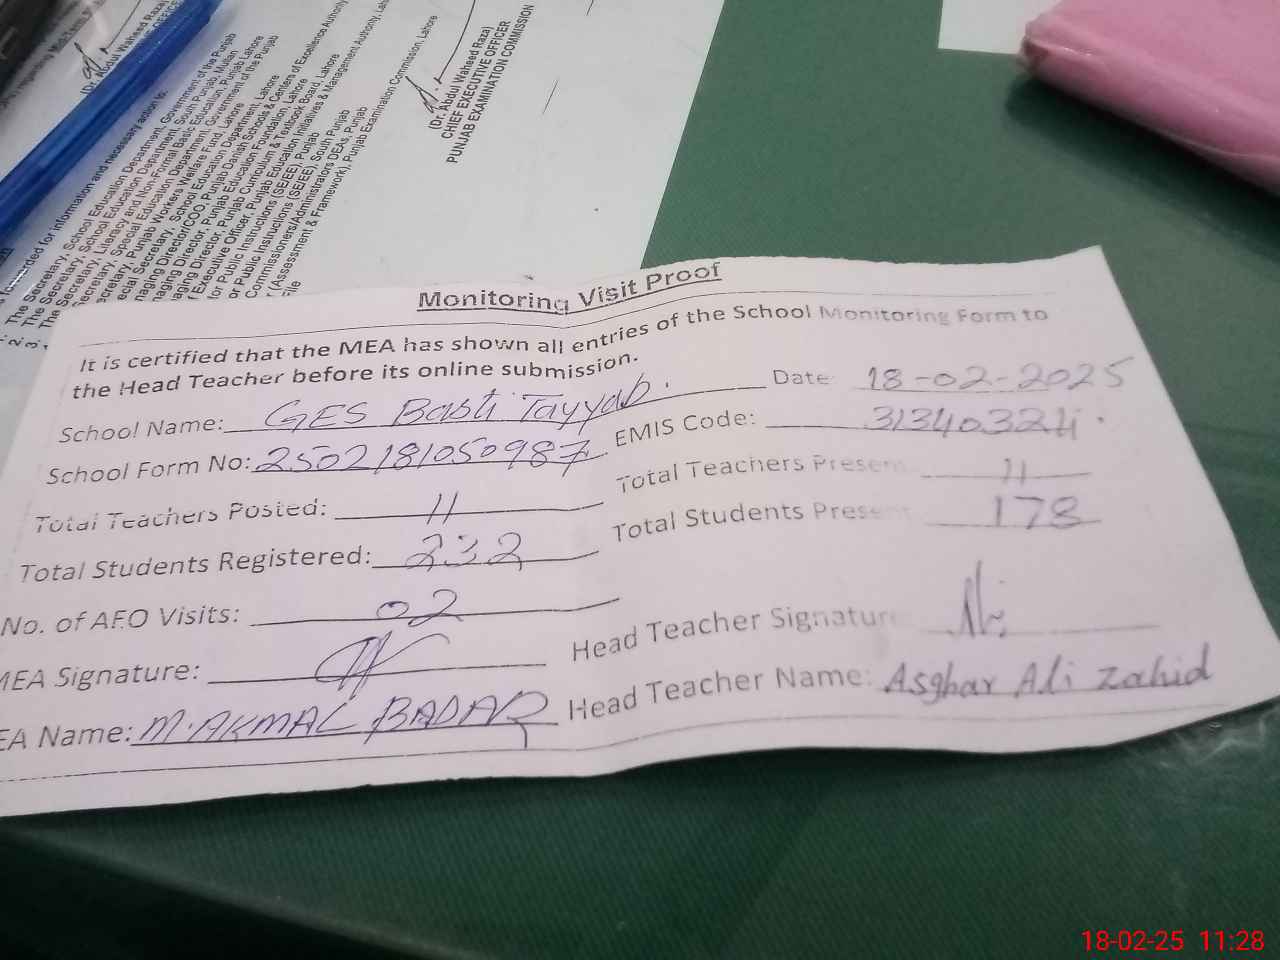 (Dr. Abdul Waheed Raza)
warded for information and necessary action to:
The Secretary, School Education Department, Government of the Punjab
The Secretary, School Education Department, South Punjab, Multan
The Secretary, Literacy and Non-Formal Basic Education, Punjab Lahore
Secretary, Special Education Department, Government of the Punjab
Secretary, Punjab Workers Welfare Fund, Lahore
Special Secretary, School Education Department, Lahore
naging Director/COO, Punjab Danish Schools & Centers of Excellence Authority
naging Director, Punjab Education Foundation, Lahore
aging Director, Punjab Curriculum & Textbook Board, Lahore
f Executive Officer, Punjab Education Initiatives & Management Authority, Lah
or Public Instructions (SE/EE), Punjab
or Public Instructions (SE/EE), South Punjab
Commissioners/Administrators DEAs, Punjab
(Assessment & Framework), Punjab Examination Commission, Lahore
File
(Dr. Abdul Waheed Raza)
CHIEF EXECUTIVE OFFICER
PUNJAB EXAMINATION COMMISSION
Monitoring Visit Proof
It is certified that the MEA has shown all entries of the School Monitoring Form to
the Head Teacher before its online submission.
School Name: GES Basti Tayyab. Date: 18-02-2025
School Form No: 2502181050987 EMIS Code: 31340324
Total Teachers Posted: 11 Total Teachers Presen 11
Total Students Registered: 232 Total Students Presen 178
No. of AEO Visits: 02
MEA Signature: Head Teacher Signatur
EA Name: M. AKMAL BADAR Head Teacher Name: Asghar Ali Zahid
18-02-25 11:28